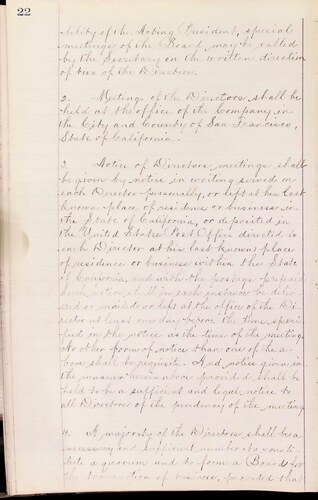 22
bility of the Acting President, special
meetings of the Board may be called
by the Secretary on the written direction
of two of the Directors.
2. Meetings of the Directors shall be
held at the office of the Company, in
the City and County of San Francisco,
State of California.
3. Notice of Directors meetings shall
be given by notice in writing served on
each Director personally, or left at his last
known place of residence or business in
the State of California, or deposited in
the United States Post Office directed to
each Director at his last known place
of residence or business within the State
of California, and with the postage prepaid
such notice shall in each instance be
or mailed or left at the office of the Di-
rector at least one day before the time speci-
fied in the notice as the time of the meeting.
No other form of notice than one of the a-
bove shall be requisite. And notice given in
the manner herein above provided shall be
held to be a sufficient and legal notice to
all Directors of the pendency of the meeting
4. A majority of the Directors shall be a
necessary and sufficient number to consti-
tute a quorum and to form a Board for
the transaction of business, provided that